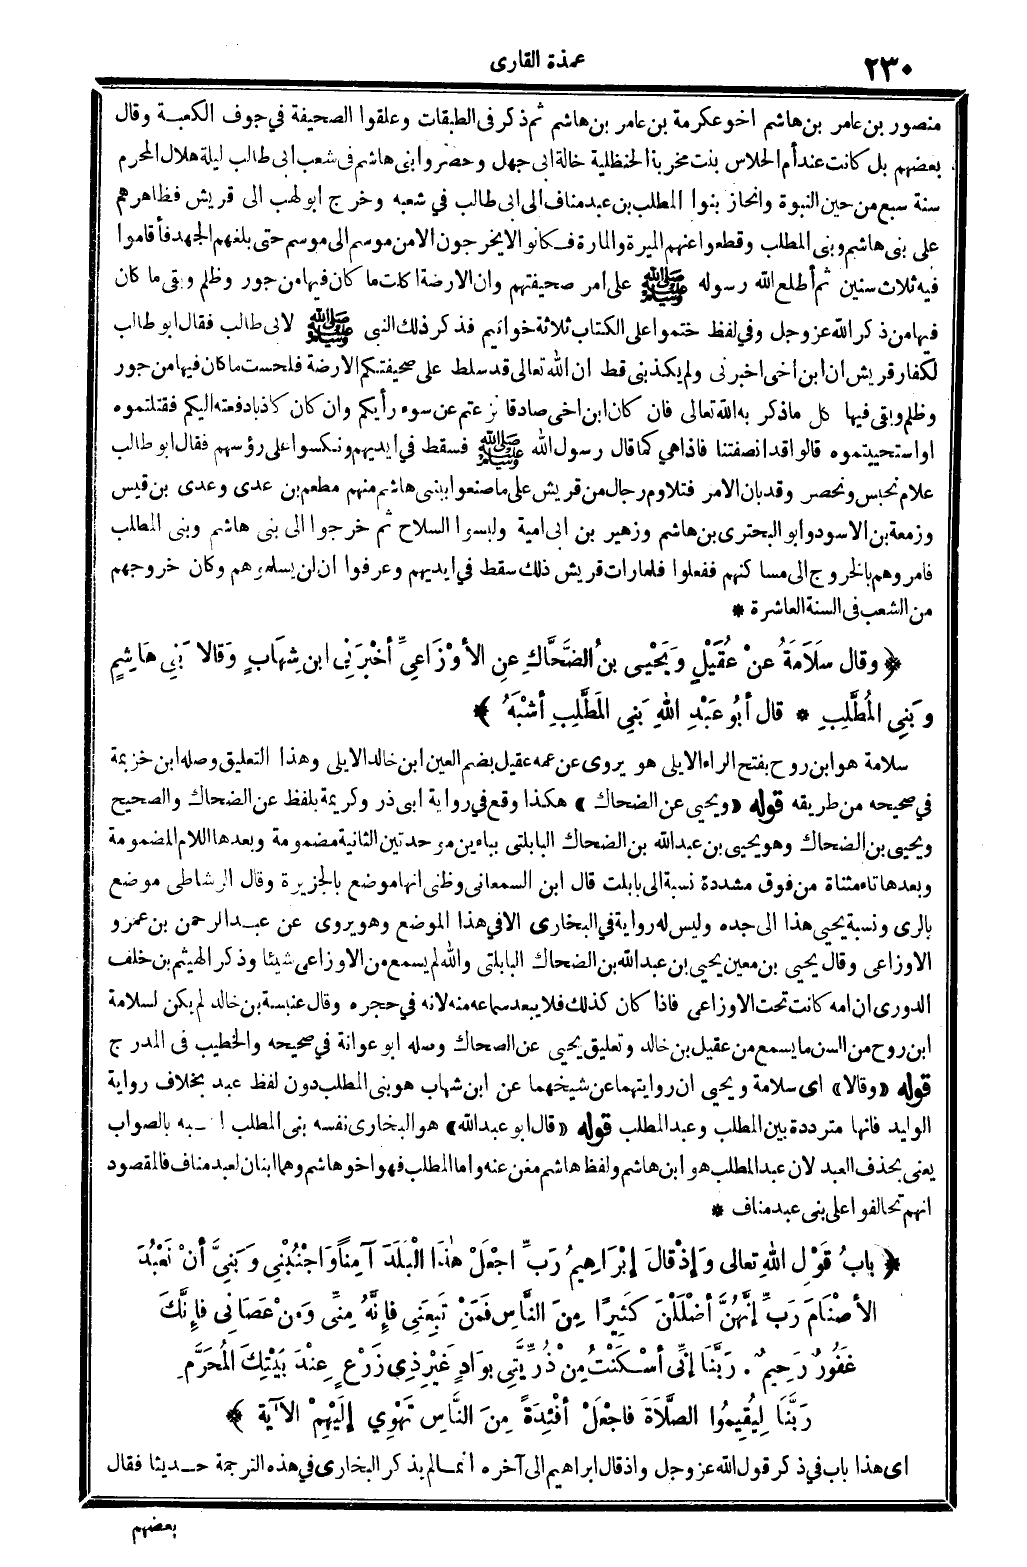 ٢٣٠
عمدة القارى
منصور بن عامر بن هاشم اخو عكرمة بن عامر بن هاشم ثم ذكر فى الطبقات وعلقوا الصحيفة في جوف الكعبة وقال
بعضهم بل كانت عند أم الجلاس بنت مخربة الحنظلية خالة ابى جهل وحصروا بنى هاشم فى شعب ابى طالب ليلة هلال المحرم
سنة سبع من حين النبوة وانحاز بنوا المطلب بن عبد مناف الى ابى طالب في شعبه وخرج ابو لهب الى قريش فظاهرهم
على بنى هاشم وبنى المطلب وقطعوا عنهم الميرة والمارة فكانوا لا يخرجون الا من موسم الى موسم حتى بلغهم الجهد فأقاموا
فيه ثلاث سنين ثم أطلع الله رسوله ﷺ على امر صحيفتهم وان الارضة اكلت ما كان فيها من جور وظلم وبقى ما كان
فيها من ذكر الله عز وجل وفي لفظ ختموا على الكتاب ثلاثة خواتيم فذكر ذلك النبى ﷺ لابى طالب فقال ابو طالب
لكفار قريش ان ابن اخى اخبرنى ولم يكذبنى قط ان الله تعالى قد سلط على صحيفتكم الارضة فلحست ما كان فيها من جور
وظلم وبقى فيها كل ما ذكر به الله تعالى فان كان ابن اخى صادقا نزعتم عن سوء رأيكم وان كان كاذبا دفعته اليكم فقتلتموه
او استحييتموه قالوا قد انصفتنا فاذا هي كما قال رسول الله ﷺ فسقط في ايديهم ونكسوا على رؤسهم فقال ابو طالب
علام نحبس ونحصر وقد بان الامر فتلاوم رجال من قريش على ما صنعوا ببنى هاشم منهم مطعم بن عدى وعدى بن قيس
وزمعة بن الاسود وابو البحترى بن هاشم وزهير بن ابى امية ولبسوا السلاح ثم خرجوا الى بنى هاشم وبنى المطلب
فامروهم بالخروج الى مساكنهم ففعلوا فلما رات قريش ذلك سقط في ايديهم وعرفوا ان لن يسلموهم وكان خروجهم
من الشعب فى السنة العاشرة *
﴿ وقال سَلَامَةُ عنْ عُقَيْلٍ ويَحْيَى بنُ الضَّحَّاكِ عنِ الأوْزَاعِيِّ أخْبَرَنِي ابن شِهَابٍ وَقالا بَنِي هَاشِمٍ
وبَنِي الْمُطَّلِبِ * قال أبُو عَبْدِ اللهِ بَنِي الْمُطَّلِبِ أشْبَهُ ﴾
سلامة هو ابن روح بفتح الراء الايلى هو يروى عن عمه عقيل بضم العين ابن خالد الايلى وهذا التعليق وصله ابن خزيمة
في صحيحه من طريقه قوله «ويحيى عن الضحاك» هكذا وقع في رواية ابى ذر وكريمة بلفظ عن الضحاك والصحيح
ويحيى بن الضحاك وهو يحيى بن عبد الله بن الضحاك البابلتى بباءين موحدتين الثانية مضمومة وبعدها اللام المضمومة
وبعدها تاء مثناة من فوق مشددة نسبة الى بابلت قال ابن السمعانى وظنى انها موضع بالجزيرة وقال الرشاطى موضع
بالرى ونسبة يحيى هذا الى جده وليس له رواية في البخارى الا في هذا الموضع وهو يروى عن عبد الرحمن بن عمرو
الاوزاعى وقال يحيى بن معين يحيى بن عبد الله بن الضحاك البابلتى والله لم يسمع من الاوزاعى شيئا وذكر الهيثم بن خلف
الدورى ان امه كانت تحت الاوزاعى فاذا كان كذلك فلا يبعد سماعه منه لانه في حجره وقال عنبسة بن خالد لم يكن لسلامة
ابن روح من السن ما يسمع من عقيل بن خالد وتعليق يحيى عن الضحاك وصله ابو عوانة في صحيحه والخطيب فى المدرج
قوله «وقالا» اى سلامة ويحيى ان روايتهما عن شيخهما عن ابن شهاب هو بنى المطلب دون لفظ عبد بخلاف رواية
الوليد فانها مترددة بين المطلب وعبد المطلب قوله «قال ابو عبد الله» هو البخارى نفسه بنى المطلب اشبه بالصواب
يعنى بحذف العبد لان عبد المطلب هو ابن هاشم ولفظ هاشم مغن عنه واما المطلب فهو اخو هاشم وهما ابنان لعبد مناف فالمقصود
انهم تحالفوا على بنى عبد مناف *
﴿ بابُ قَوْلِ اللهِ تعالى وَإذْ قالَ إبْرَاهِيمُ رَبِّ اجْعَلْ هٰذَا الْبَلَدَ آمِناً وَاجْنُبْنِي وَبَنِيَّ أنْ نَعْبُدَ
الأصْنَامَ رَبِّ إنَّهُنَّ أضْلَلْنَ كَثِيرًا مِنَ النَّاسِ فَمَنْ تَبِعَنِي فإِنَّهُ مِنِّى وَمَنْ عَصَانِى فإِنَّكَ
غَفُورٌ رَحِيمٌ . رَبَّنَا إنِّى أسْكَنْتُ مِنْ ذُرِّيَّتِي بِوَادٍ غَيْرِ ذِي زَرْعٍ عِنْدَ بَيْتِكَ الْمُحَرَّمِ
رَبَّنَا لِيُقِيمُوا الصَّلَاةَ فاجْعَلْ أفْئِدَةً مِنَ النَّاسِ تَهْوِي إلَيْهِمْ الآيَة ﴾
اى هذا باب في ذكر قول الله عز وجل واذ قال ابراهيم الى آخره انما لم يذكر البخارى في هذه الترجمة حديثا فقال
بعضهم